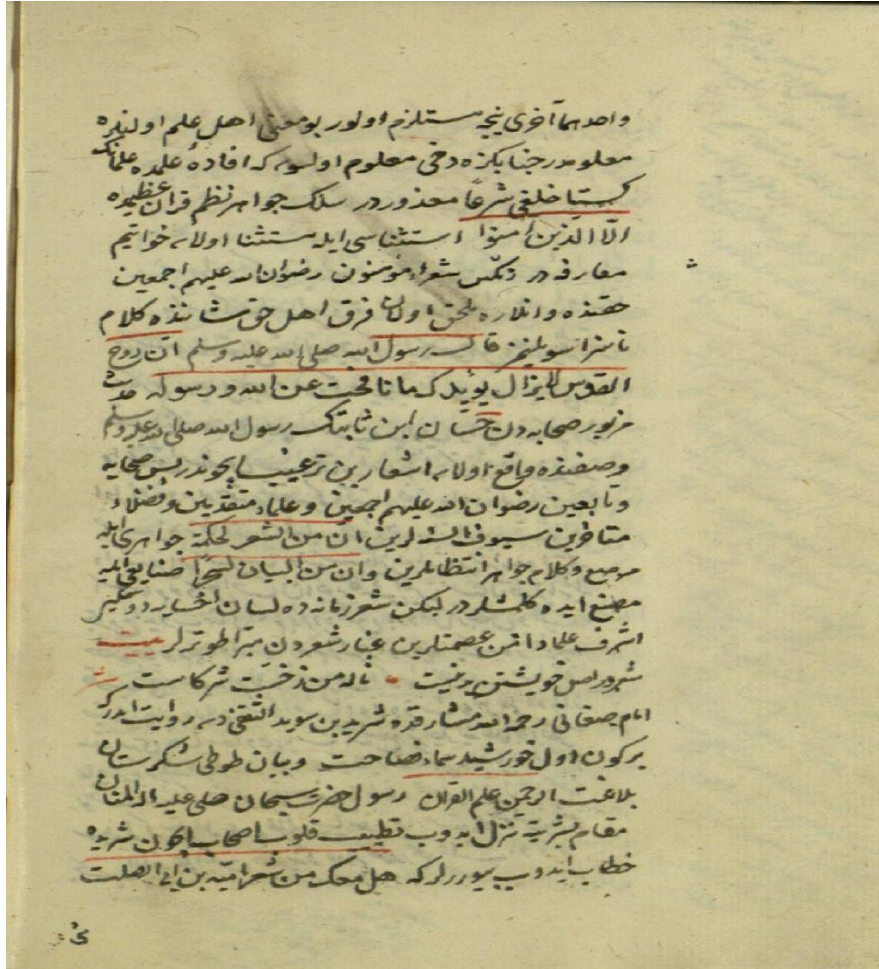 واحدهما آخری نیجه مستلزم اولور بو معنی اهل علم اولنلره
معلومدر جنابکزه دخی معلوم اولسونکه افادهٔ علمده علمانک
کستاخلغی شرعاً معذوردر سلک جواهر نظم قران عظیمده
الّا الّذین امنوا استثناسی ایله مستثنا اولان خواتیم
معارفدر شعراء مؤمنون رضوان الله علیهم اجمعین
حقنده وانلاره ملحق اولان فرق اهل حق شاننده کلام
ناسزا سویلنمز قال رسول الله صلی الله علیه وسلم انّ روح
القدس لایزال یؤیّدک ما نافحت عن الله ورسوله حدیث
مزبور صحابه دن حسّان ابن ثابتک رسول الله صلی الله علیه وسلم
وصفنده واقع اولان اشعارین ترغیب ایچوندر پس صحابه
وتابعین رضوان الله علیهم اجمعین وعلماء متقدّمین وفضلاء
متاخرین سیوف السنه لرین انّ من الشعر لحکمة جواهری ایله
مرصع وکلام جواهر انتظاملرین وان من البیان لسحرًا صنایعی ایله
مصنع ایده کلمشلردر لیکن شعر زنانه ده لسان
اشرف علما دامن عصمتلرین غبار شعردن مبرّا طوترلر بیت
شعر در اصل خویشتن بد نیست ناله من ز خسّت شرکاست
امام صغانی رحمه الله مشارقده شرید بن سوید الثقفی دن روایت ایدر که
بر کون اول خورشید سماء فصاحت وبیان طوطی شکرستان
بلاغت الرحمن علم القران رسول حضرت سبحان صلی علیه الملک المنان
مقام بشریته تنزل ایدوب تطییب قلوب اصحاب ایچون شریده
خطاب ایدوب بیوررلر که هل معک من شعر امیّه بن ابی الصلت